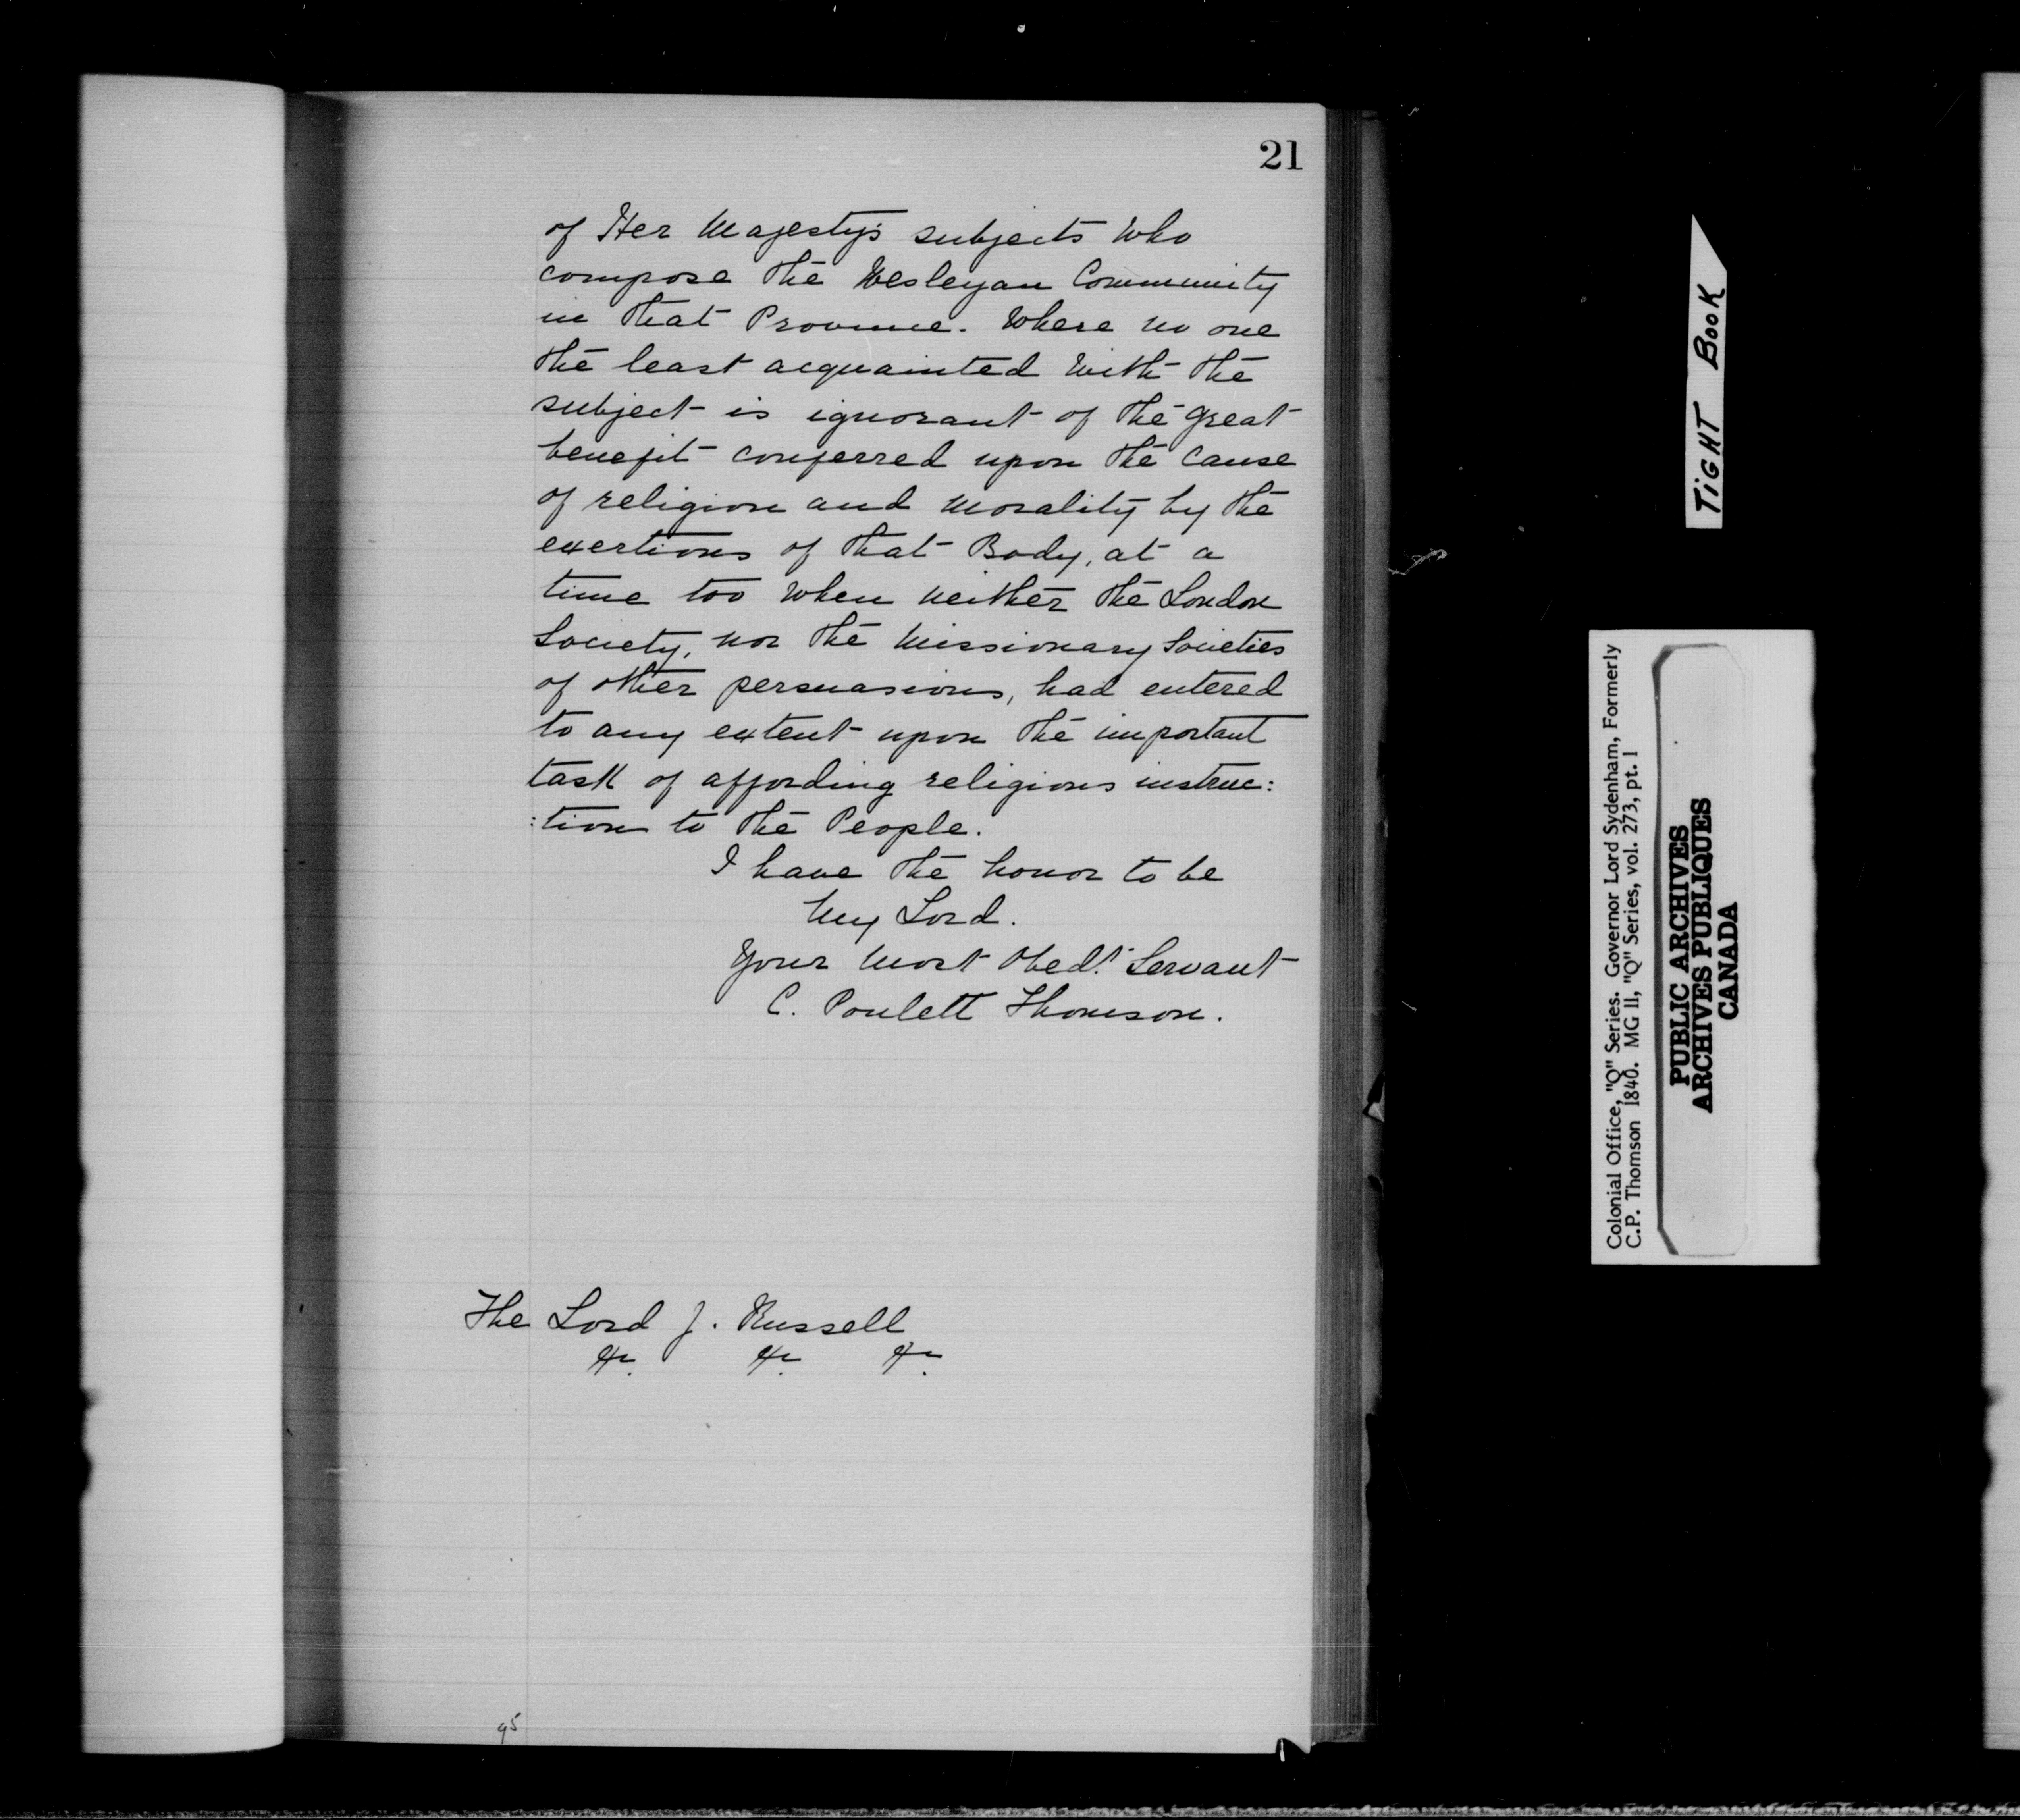 21
of Her Majesty's subjects who
compose the Wesleyan Community
in that Province. Where no one
the least acquainted with the
subject is ignorant of the great
benefit conferred upon the cause
of religion and morality by the
exertions of that Body, at a
time too when neither the London
Society, nor the Missionary Societies
of other persuasions, had entered
to any extent upon the important
task of affording religious instruc:
:tion to the People.
I have the honor to be
My Lord.
Your Most Obedt. Servant
C. Poulett Thomson.
The Lord J. Russell
&c. &c. &c.
95
TIGHT BOOK
Colonial Office, "Q" Series. Governor Lord Sydenham, Formerly
C.P. Thomson 1840. MG 11, "Q" Series, vol. 273, pt. 1
PUBLIC ARCHIVES
ARCHIVES PUBLIQUES
CANADA